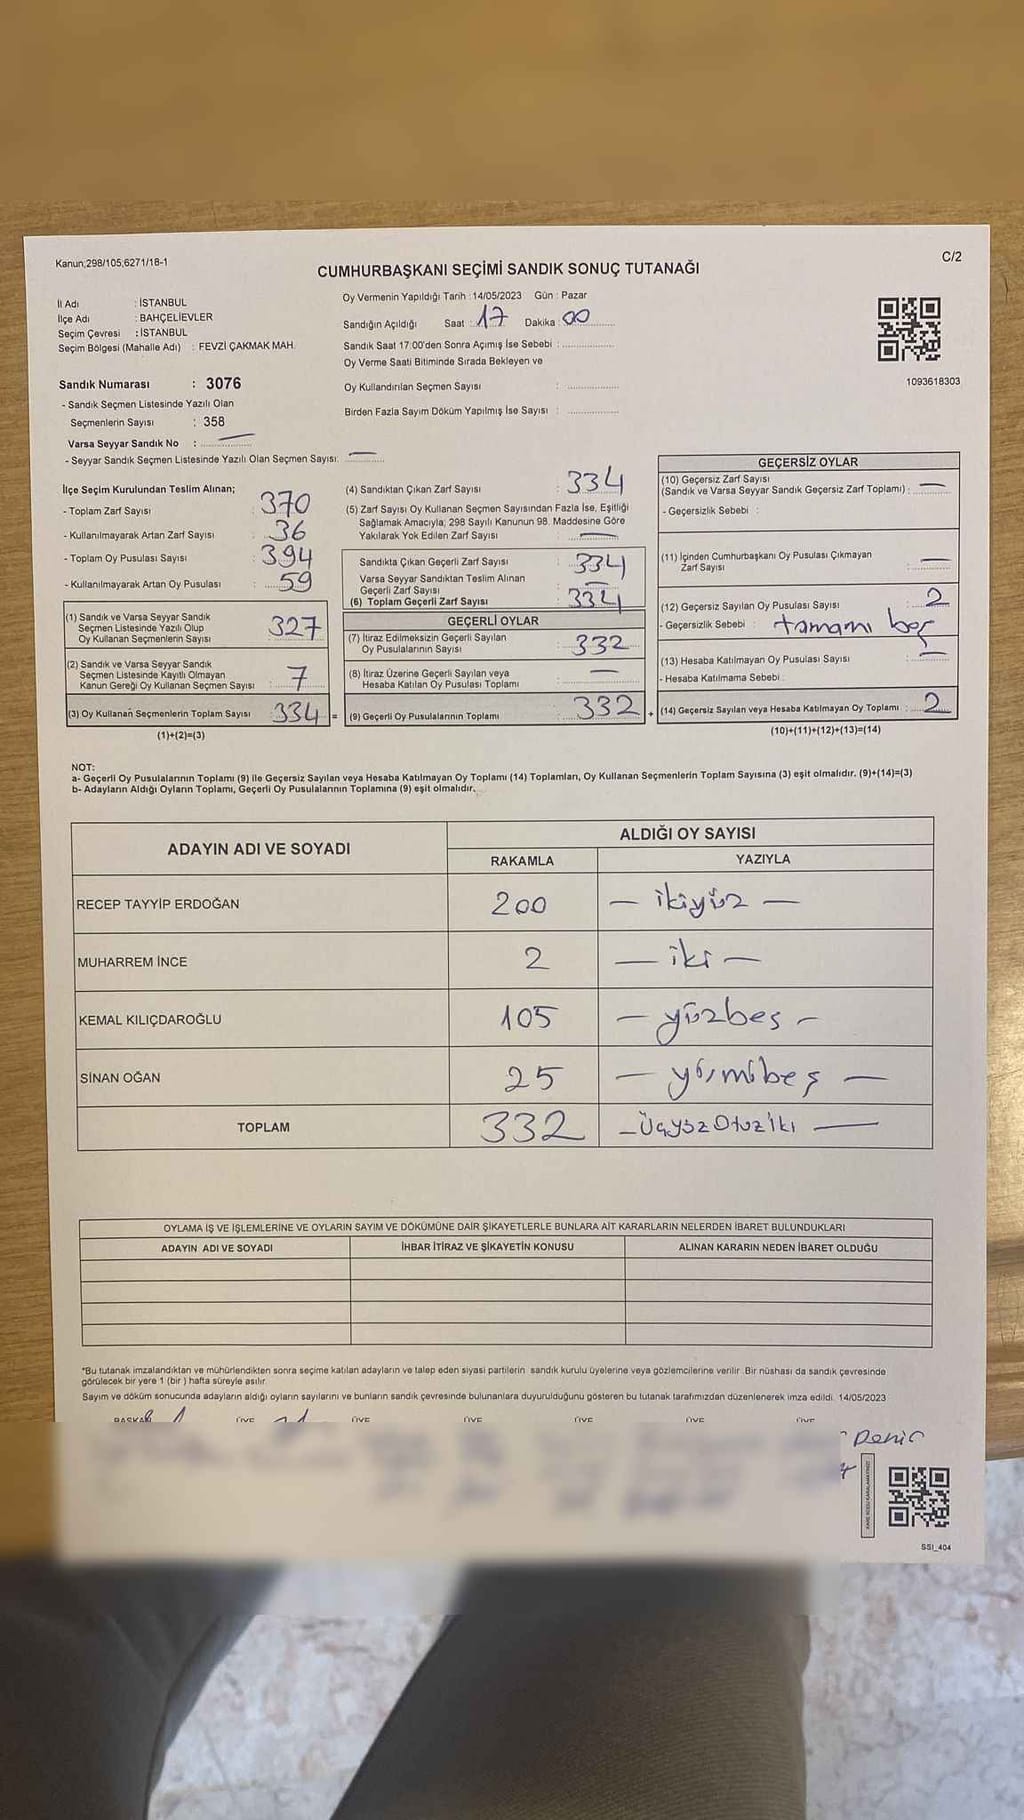 Kanun;298/105;6271/18-1
C/2
CUMHURBAŞKANI SEÇİMİ SANDIK SONUÇ TUTANAĞI
İl Adı : İSTANBUL
İlçe Adı : BAHÇELİEVLER
Seçim Çevresi : İSTANBUL
Seçim Bölgesi (Mahalle Adı) : FEVZİ ÇAKMAK MAH.
Oy Vermenin Yapıldığı Tarih : 14/05/2023 Gün : Pazar
Sandığın Açıldığı Saat : 17 Dakika : 00
Sandık Saat 17:00'den Sonra Açımış İse Sebebi :
Oy Verme Saati Bitiminde Sırada Bekleyen ve
Oy Kullandırılan Seçmen Sayısı :
Birden Fazla Sayım Döküm Yapılmış İse Sayısı :
1093618303
Sandık Numarası : 3076
- Sandık Seçmen Listesinde Yazılı Olan
Seçmenlerin Sayısı : 358
Varsa Seyyar Sandık No : —
- Seyyar Sandık Seçmen Listesinde Yazılı Olan Seçmen Sayısı: —
İlçe Seçim Kurulundan Teslim Alınan;
- Toplam Zarf Sayısı : 370
- Kullanılmayarak Artan Zarf Sayısı : 36
- Toplam Oy Pusulası Sayısı : 394
- Kullanılmayarak Artan Oy Pusulası : 59
(1) Sandık ve Varsa Seyyar Sandık
Seçmen Listesinde Yazılı Olup
Oy Kullanan Seçmenlerin Sayısı : 327
(2) Sandık ve Varsa Seyyar Sandık
Seçmen Listesinde Kayıtlı Olmayan
Kanun Gereği Oy Kullanan Seçmen Sayısı : 7
(3) Oy Kullanan Seçmenlerin Toplam Sayısı : 334 =
(1)+(2)=(3)
(4) Sandıktan Çıkan Zarf Sayısı : 334
(5) Zarf Sayısı Oy Kullanan Seçmen Sayısından Fazla İse, Eşitliği
Sağlamak Amacıyla; 298 Sayılı Kanunun 98. Maddesine Göre
Yakılarak Yok Edilen Zarf Sayısı : —
Sandıkta Çıkan Geçerli Zarf Sayısı : 334
Varsa Seyyar Sandıktan Teslim Alınan
Geçerli Zarf Sayısı : —
(6) Toplam Geçerli Zarf Sayısı : 334
GEÇERLİ OYLAR
(7) İtiraz Edilmeksizin Geçerli Sayılan
Oy Pusulalarının Sayısı : 332
(8) İtiraz Üzerine Geçerli Sayılan veya
Hesaba Katılan Oy Pusulası Toplamı : —
(9) Geçerli Oy Pusulalarının Toplamı : 332 +
GEÇERSİZ OYLAR
(10) Geçersiz Zarf Sayısı
(Sandık ve Varsa Seyyar Sandık Geçersiz Zarf Toplamı) : —
- Geçersizlik Sebebi :
(11) İçinden Cumhurbaşkanı Oy Pusulası Çıkmayan
Zarf Sayısı : —
(12) Geçersiz Sayılan Oy Pusulası Sayısı : 2
- Geçersizlik Sebebi : tamamı boş
(13) Hesaba Katılmayan Oy Pusulası Sayısı : —
- Hesaba Katılmama Sebebi :
(14) Geçersiz Sayılan veya Hesaba Katılmayan Oy Toplamı : 2
(10)+(11)+(12)+(13)=(14)
NOT:
a- Geçerli Oy Pusulalarının Toplamı (9) ile Geçersiz Sayılan veya Hesaba Katılmayan Oy Toplamı (14) Toplamları, Oy Kullanan Seçmenlerin Toplam Sayısına (3) eşit olmalıdır. (9)+(14)=(3)
b- Adayların Aldığı Oyların Toplamı, Geçerli Oy Pusulalarının Toplamına (9) eşit olmalıdır.
ADAYIN ADI VE SOYADI ALDIĞI OY SAYISI
RAKAMLA YAZIYLA
RECEP TAYYİP ERDOĞAN 200 — ikiyüz —
MUHARREM İNCE 2 — iki —
KEMAL KILIÇDAROĞLU 105 — yüzbeş —
SİNAN OĞAN 25 — yirmibeş —
TOPLAM 332 — ÜçyüzOtuziki —
OYLAMA İŞ VE İŞLEMLERİNE VE OYLARIN SAYIM VE DÖKÜMÜNE DAİR ŞİKAYETLERLE BUNLARA AİT KARARLARIN NELERDEN İBARET BULUNDUKLARI
ADAYIN ADI VE SOYADI İHBAR İTİRAZ VE ŞİKAYETİN KONUSU ALINAN KARARIN NEDEN İBARET OLDUĞU
*Bu tutanak imzalandıktan ve mühürlendikten sonra seçime katılan adayların ve talep eden siyasi partilerin sandık kurulu üyelerine veya gözlemcilerine verilir. Bir nüshası da sandık çevresinde
görülecek bir yere 1 (bir) hafta süreyle asılır.
Sayım ve döküm sonucunda adayların aldığı oyların sayılarını ve bunların sandık çevresinde bulunanlara duyurulduğunu gösteren bu tutanak tarafımızdan düzenlenerek imza edildi. 14/05/2023
BAŞKAN ÜYE ÜYE ÜYE ÜYE ÜYE ÜYE
SSİ_404